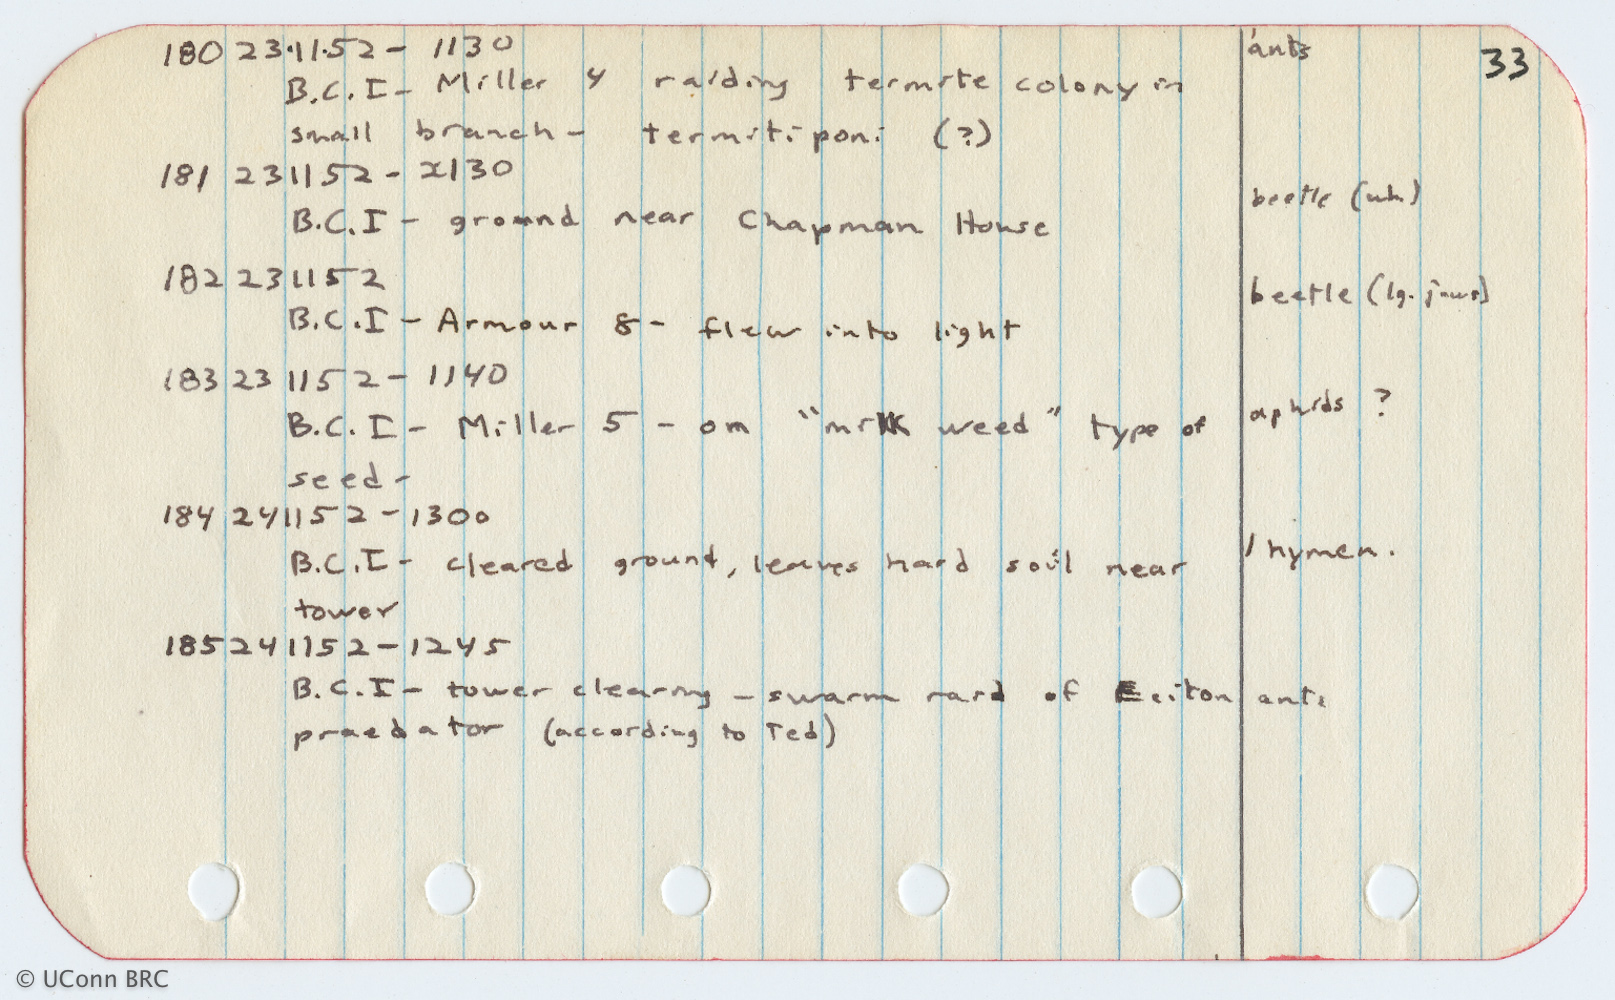 33
180 23·11·52 - 1130 ants
B.C.I - Miller 4 raiding termite colony in
small branch - termitiponi (?)
181 231152 - 2130
B.C.I - ground near Chapman House beetle (wh)
182 231152
B.C.I - Armour 8 - flew into light beetle (lg. jaws)
183 231152 - 1140
B.C.I - Miller 5 - on "milk weed" type of aphids ?
seed -
184 241152 - 1300
B.C.I - cleared ground, leaves hard soil near 1 hymen.
tower
185 241152 - 1245
B.C.I - tower clearing - swarm raid of Eciton ants
praedator (according to Ted)
© UConn BRC